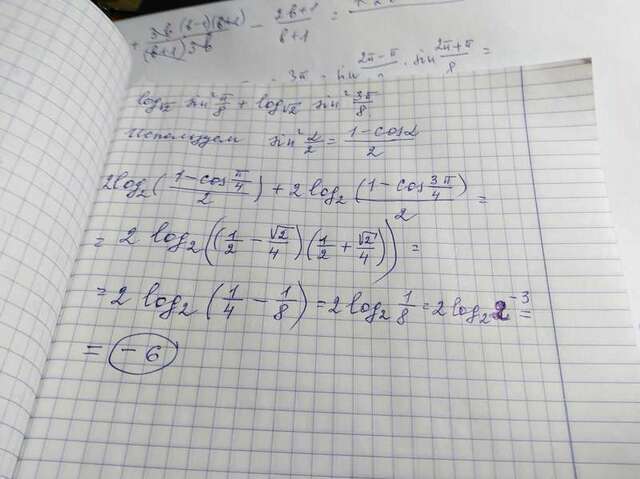 5b (b-1)(b+1) / (b+1) 5b - 2b+1 / b+1 =
sin (2π+π)/8 =
log√2 sin² π/8 + log√2 sin² 3π/8
Используем sin² α/2 = (1-cosα)/2
2log₂((1-cos π/4)/2) + 2log₂((1-cos 3π/4)/2) =
= 2 log₂((1/2 - √2/4)(1/2 + √2/4)) =
= 2 log₂(1/4 - 1/8) = 2log₂ 1/8 = 2log₂2⁻³ =
= -6